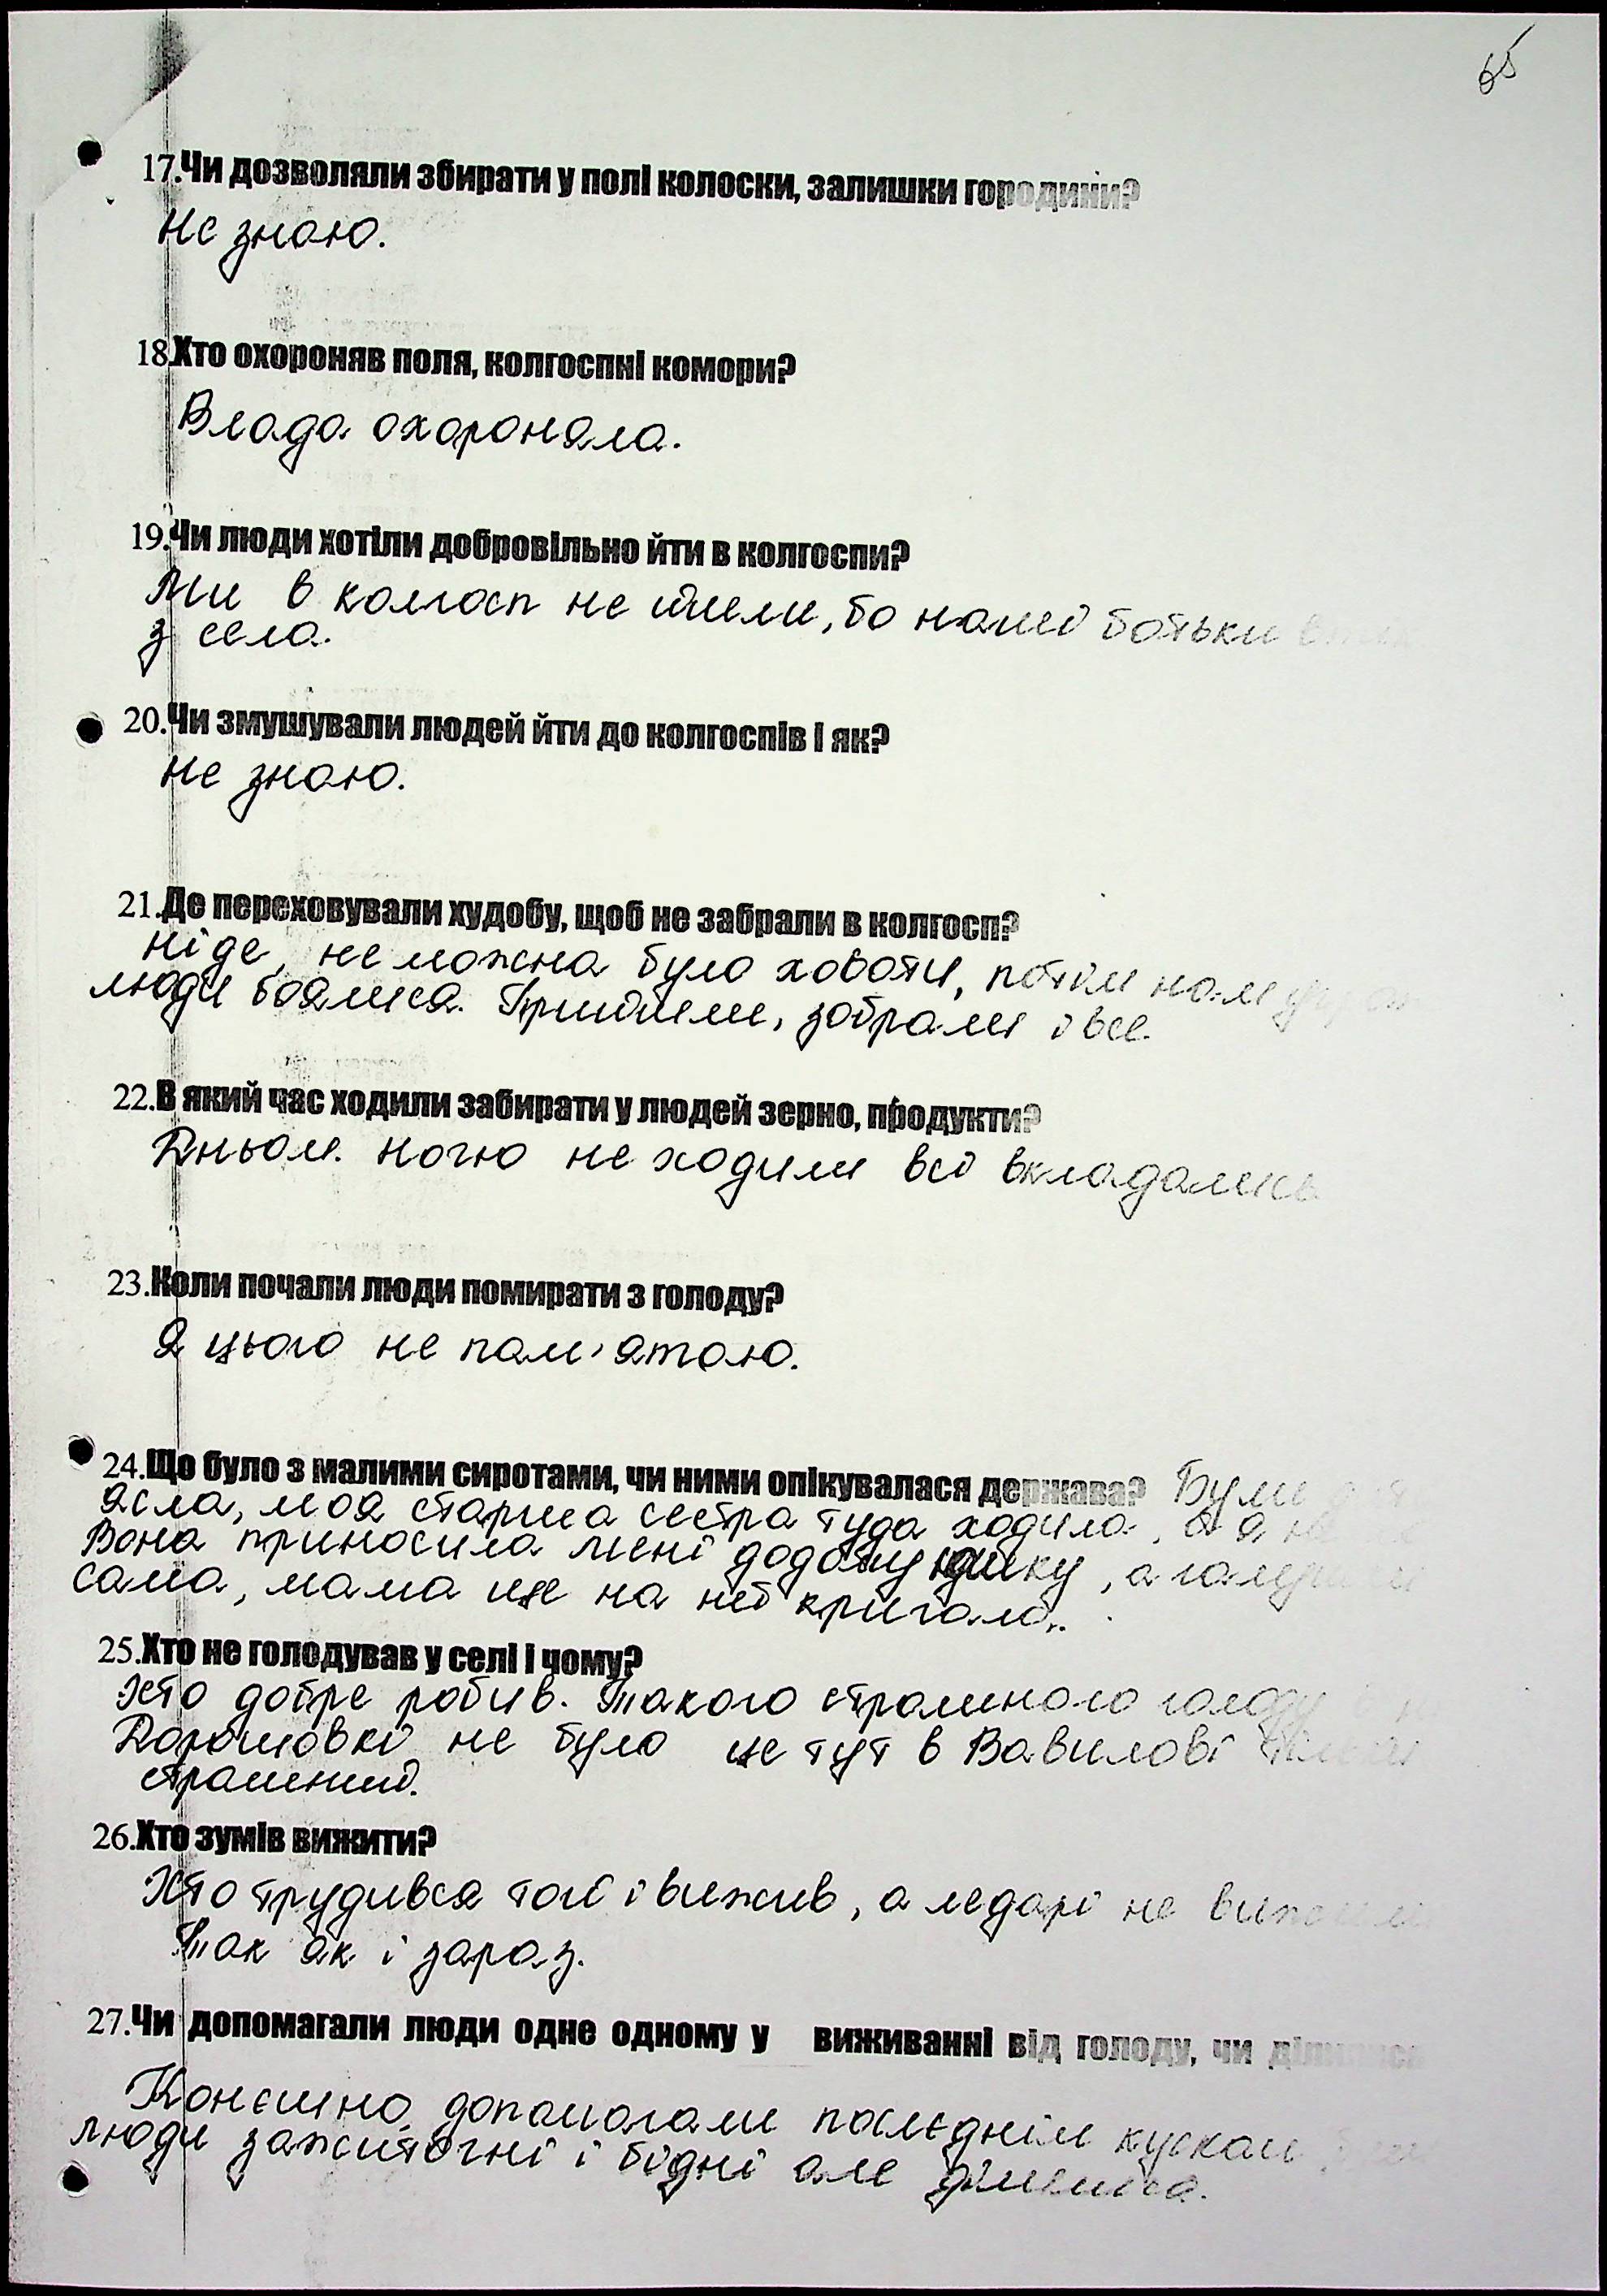 65
17.Чи дозволяли збирати у полі колоски, залишки городини?
Не знаю.
18.Хто охороняв поля, колгоспні комори?
Влада охороняла.
19.Чи люди хотіли добровільно йти в колгоспи?
Ми в колгосп не йшли, бо наші батьки
з села.
20.Чи змушували людей йти до колгоспів і як?
Не знаю.
21.Де переховували худобу, щоб не забрали в колгосп?
Ніде, не можна було ховати, потім
люди боялися. Прийшли, забрали і все.
22.В який час ходили забирати у людей зерно, продукти?
Дньом. Ночю не ходили всі вкладались
23.Коли почали люди помирати з голоду?
Я цього не пам'ятаю.
24.Що було з малими сиротами, чи ними опікувалася держава? Були
ясла, моя старша сестра туда ходила, а я не
Вона приносила мені додому юшку, а
сама, мама ще на неї кричала..
25.Хто не голодував у селі і чому?
Хто добре робив. Такого страшного голоду
Дорошовкі не було це тут в Вавилові
страшний.
26.Хто зумів вижити?
Хто трудився той і вижив, а ледарі не вижили
Так як і зараз.
27.Чи допомагали люди одне одному у виживанні від голоду, чи ділилися
Конєшно допомагали послєднім куском
люди зажиточні і бідні але ділилися.